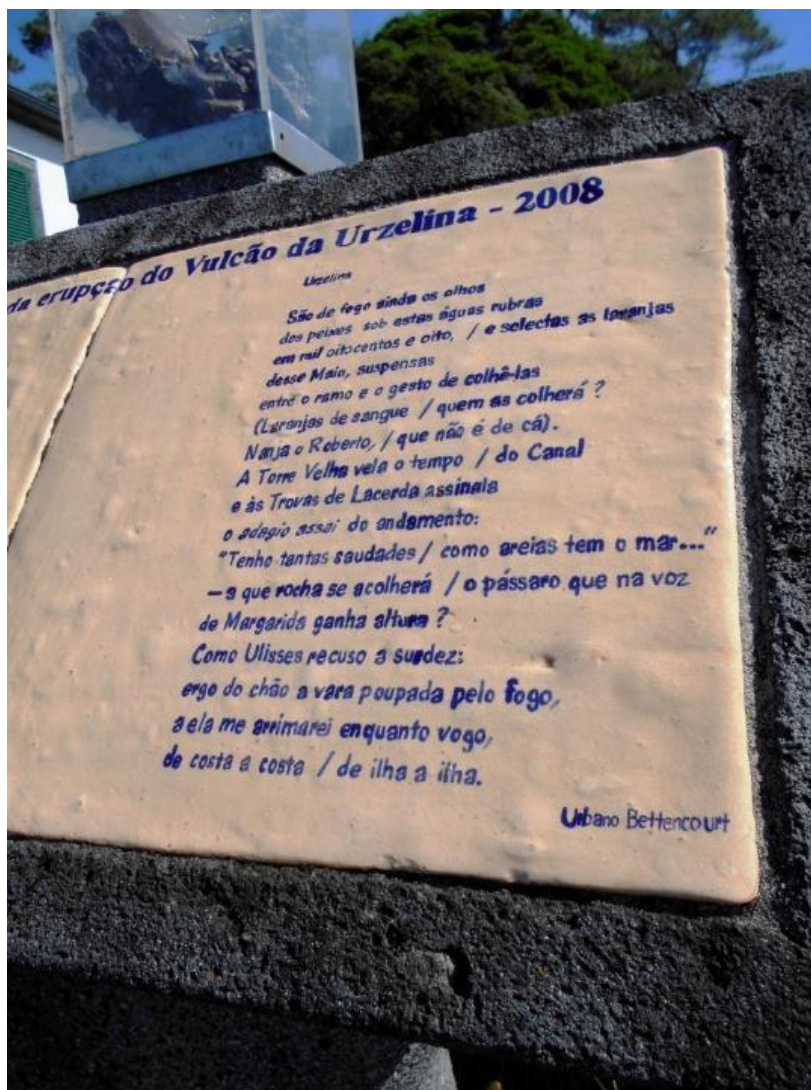 da erupção do Vulcão da Urzelina - 2008
Urzelina
São de fogo ainda os olhos
dos peixes sob estas águas rubras
em mil oitocentos e oito, / e selectas as laranjas
desse Maio, suspensas
entre o ramo e o gesto de colhê-las
(Laranjas de sangue / quem as colherá ?
Nanja o Roberto, / que não é de cá).
A Torre Velha vela o tempo / do Canal
e às Trovas de Lacerda assinala
o adagio assai do andamento:
"Tenho tantas saudades / como areias tem o mar..."
— a que rocha se acolherá / o pássaro que na voz
de Margarida ganha altura ?
Como Ulisses recuso a surdez:
ergo do chão a vara poupada pelo fogo,
a ela me arrimarei enquanto vogo,
de costa a costa / de ilha a ilha.
Urbano Bettencourt